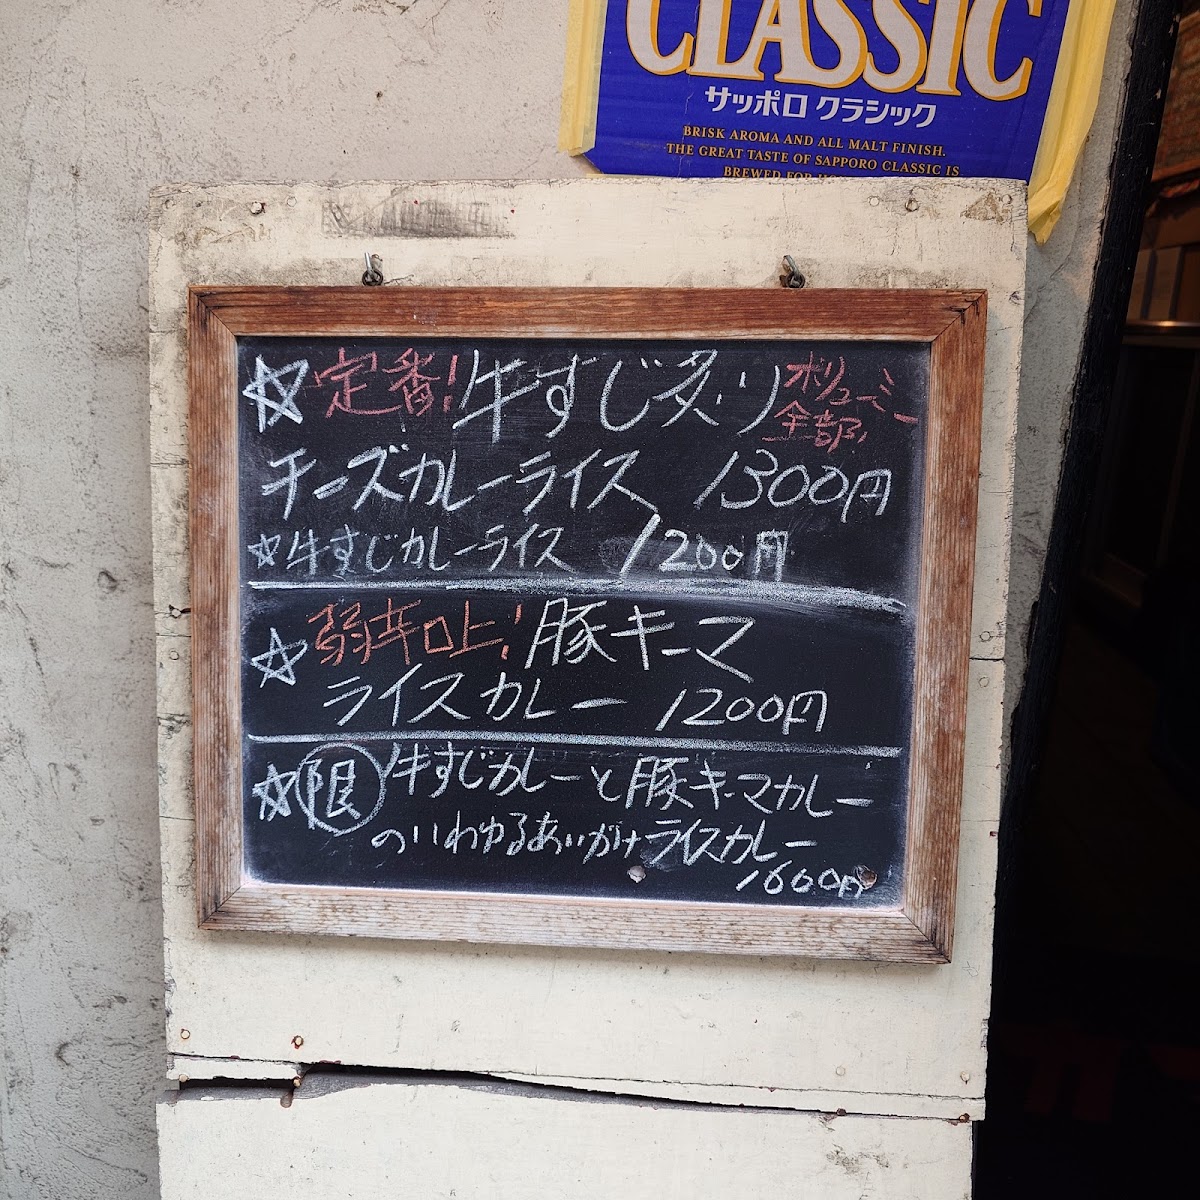 CLASSIC
サッポロ クラシック
BRISK AROMA AND ALL MALT FINISH.
THE GREAT TASTE OF SAPPORO CLASSIC IS
BREWED FOR
☆定番!牛すじ炙り ボリューミー
全部
チーズカレーライス 1300円
☆牛すじカレーライス 1200円
☆弱辛口上!豚キーマ
ライスカレー 1200円
☆限 牛すじカレーと豚キーマカレー
のいわゆるあいがけライスカレー
1600円